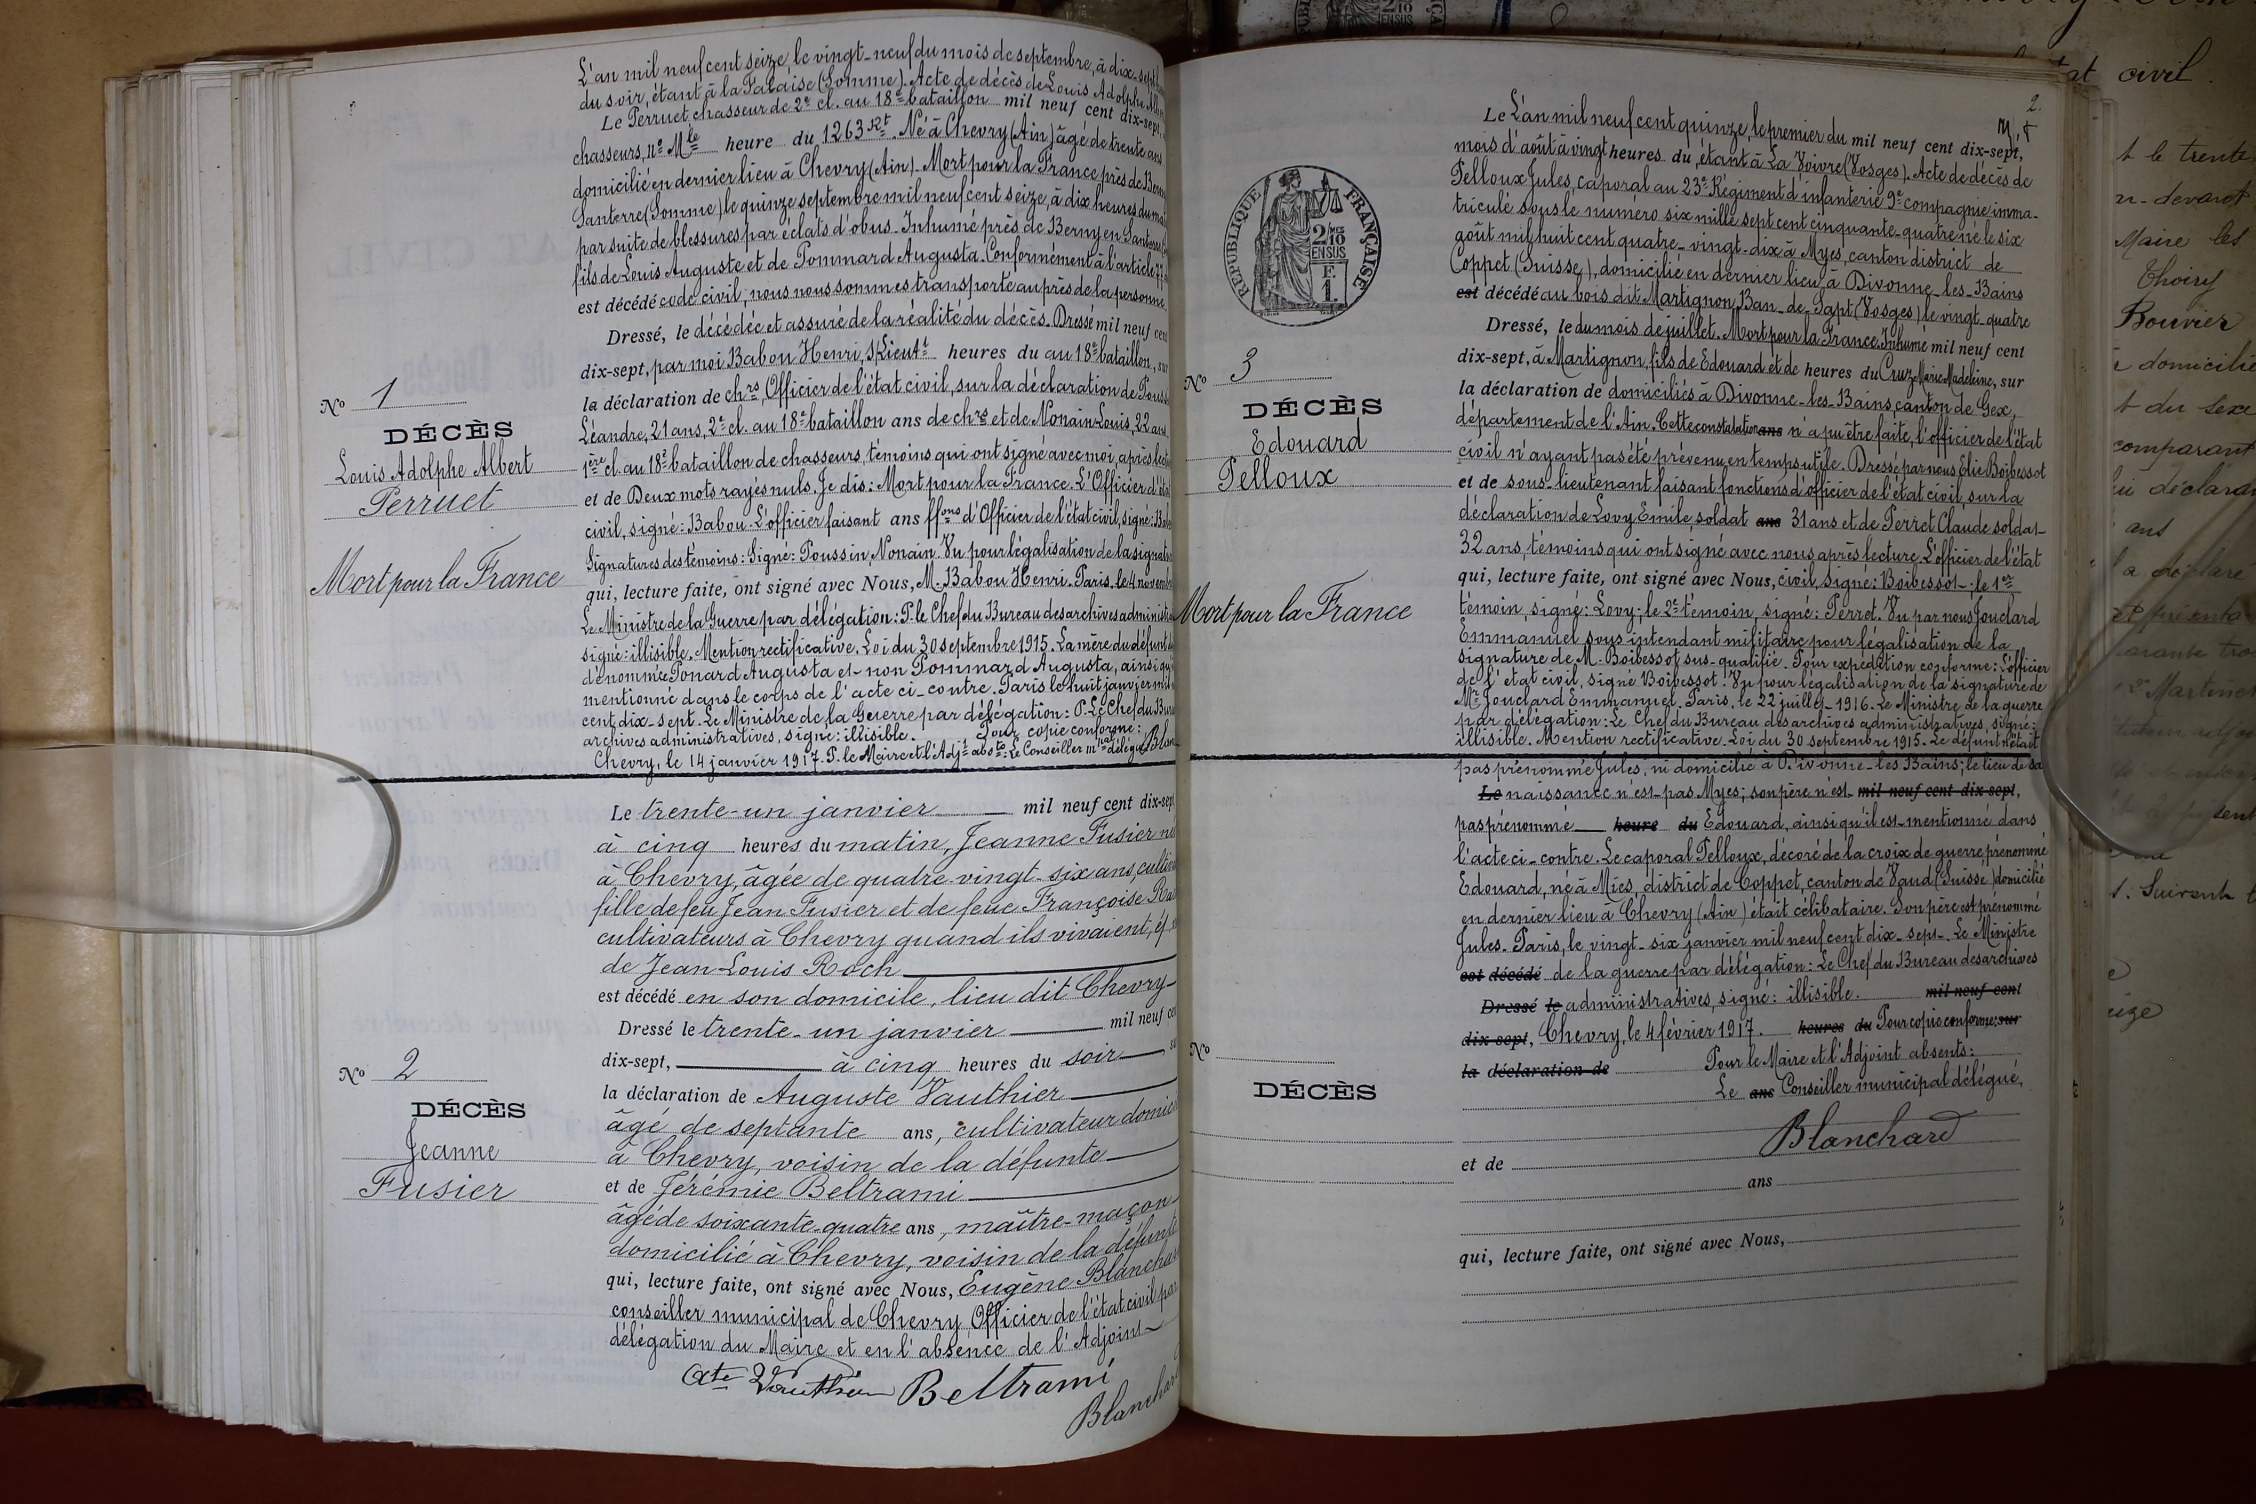 L'an mil neuf cent seize, le vingt-neuf du mois de septembre, à dix-sept
du soir, étant à la Falaise (Somme). Acte de décès de Louis Adolphe
Le Perruet chasseur de 2e cl. au 18e bataillon mil neuf cent dix-sept,
chasseurs, no Mle heure du 1263 Rt. Né à Chevry (Ain) âgé de trente ans
domicilié en dernier lieu à Chevry (Ain). Mort pour la France près de
Santerre (Somme) le quinze septembre mil neuf cent seize, à dix heures du
par suite de blessures par éclats d'obus. Inhumé près de Berny en Santerre
fils de Louis Auguste et de Pommard Augusta. Conformément à l'article 77
est décédé code civil, nous nous sommes transporté auprès de la personne
Dressé, le décédée et assuré de la réalité du décès. Dressé mil neuf cent
dix-sept, par moi Babou Henri, S/Lieutt heures du au 18e bataillon, sur
la déclaration de chrs, Officier de l'état civil, sur la déclaration de
Léandre, 21 ans, 2e cl. au 18e bataillon ans de chrs et de Nonain Louis, 22 ans
1ère cl. au 18e bataillon de chasseurs, témoins qui ont signé avec moi, après
et de Deux mots rayés nuls. Je dis: Mort pour la France. L'Officier d'
civil, signé: Babou. L'officier faisant ans ffons d'Officier de l'état civil, signé:
Signatures des témoins: Signé: Poussin, Nonain. Vu pour légalisation de la
qui, lecture faite, ont signé avec Nous, M. Babou Henri. Paris, le 4
Le Ministre de la Guerre par délégation: P. le Chef du Bureau des archives
signé: illisible. Mention rectificative. Loi du 30 septembre 1915. La mère du défunt
dénommée Ponard Augusta et non Pommard Augusta, ainsi
mentionné dans le corps de l'acte ci-contre. Paris le huit janvier mil
cent dix-sept. Le Ministre de la Guerre par délégation: P. Le Chef du
archives administratives, signé: illisible. Pour copie conforme:
Chevry, le 14 janvier 1917. P. le Maire et l'Adjt absts: Le Conseiller mpal délégué
No 1
DÉCÈS
Louis Adolphe Albert
Perruet
Mort pour la France
Le trente-un janvier mil neuf cent dix-sept
à cinq heures du matin, Jeanne Fusier
à Chevry, âgée de quatre-vingt-six ans,
fille de feu Jean Fusier et de feue Françoise
cultivateurs à Chevry quand ils vivaient,
de Jean-Louis Roch
est décédé en son domicile, lieu dit Chevry
Dressé le trente-un janvier mil neuf cent
dix-sept, à cinq heures du soir
la déclaration de Auguste Vauthier
âgé de septante ans, cultivateur
à Chevry, voisin de la défunte
et de Jérémie Beltrami
âgé de soixante-quatre ans, maître-maçon
domicilié à Chevry, voisin de la défunte
qui, lecture faite, ont signé avec Nous, Eugène Blanchard
conseiller municipal de Chevry Officier de l'état civil par
délégation du Maire et en l'absence de l'Adjoint
Ate Vauthier Beltrami
Blanchard
No 2
DÉCÈS
Jeanne
Fusier
2.
Le L'an mil neuf cent quinze le premier du mil neuf cent dix-sept,
mois d'août à vingt heures du étant à La Voivre (Vosges). Acte de décès de
Pelloux Jules, caporal au 23e Régiment d'infanterie 9e compagnie imma-
triculé sous le numéro six mille sept cent cinquante-quatre né le six
août mil huit cent quatre-vingt-dix à Myes, canton district de
Coppet (Suisse), domicilié en dernier lieu à Divonne-les-Bains
est décédé au bois dit Martignon, Ban-de-Sapt (Vosges) le vingt-quatre
Dressé, le du mois de juillet. Mort pour la France. Inhumé mil neuf cent
dix-sept, à Martignon, fils de Edouard et de heures du Cruz Marie Madeleine, sur
la déclaration de domiciliés à Divonne-les-Bains canton de Gex,
département de l'Ain. Cette constatation ans n'a pu être faite, l'officier de l'état
civil n'ayant pas été prévenu en temps utile. Dressé par nous Elie Boibessot
et de sous-lieutenant faisant fonctions d'officier de l'état civil, sur la
déclaration de Lovy Emile, soldat ans 31 ans et de Perret Claude soldat
32 ans, témoins qui ont signé avec nous après lecture. L'officier de l'état
qui, lecture faite, ont signé avec Nous, civil, signé: Boibessot; le 1er
témoin, signé: Lovy; le 2e témoin, signé: Perret. Vu par nous Jouclard
Emmanuel sous-intendant militaire pour légalisation de la
signature de M. Boibessot sus-qualifié. Pour expédition conforme: L'officier
de l'état civil, signé Boibessot. Vu pour légalisation de la signature de
Mr Jouclard Emmanuel. Paris, le 22 juillet 1916. Le Ministre de la guerre
par délégation: Le Chef du Bureau des archives administratives, signé:
illisible. Mention rectificative. Loi du 30 septembre 1915. Le défunt n'était
pas prénommé Jules, ni domicilié à Divonne-les-Bains; le lieu de sa
Le naissance n'est pas Myes; son père n'est mil neuf cent dix-sept,
pas prénommé heure du Edouard, ainsi qu'il est mentionné dans
l'acte ci-contre. Le caporal Pelloux, décoré de la croix de guerre, prénommé
Edouard, né à Mies, district de Coppet, canton de Vaud (Suisse) domicilié
en dernier lieu à Chevry (Ain) était célibataire. Son père est prénommé
Jules. Paris, le vingt-six janvier mil neuf cent dix-sept. Le Ministre
est décédé de la guerre par délégation: Le Chef du Bureau des archives
Dressé le administratives, signé: illisible. mil neuf cent
dix-sept, Chevry, le 4 février 1917. heures du Pour copie conforme: sur
la déclaration de Pour le Maire et l'Adjoint absents:
Le ans Conseiller municipal délégué,
Blanchard
et de
ans
qui, lecture faite, ont signé avec Nous,
RÉPUBLIQUE FRANÇAISE
2/10
EN SUS
F.
1.
No 3
DÉCÈS
Edouard
Pelloux
Mort pour la France
No
DÉCÈS
civil.
le trente
devant
Maire les
Thoiry
Bouvier
domicilié
du sexe
comparant
ans
Suivent